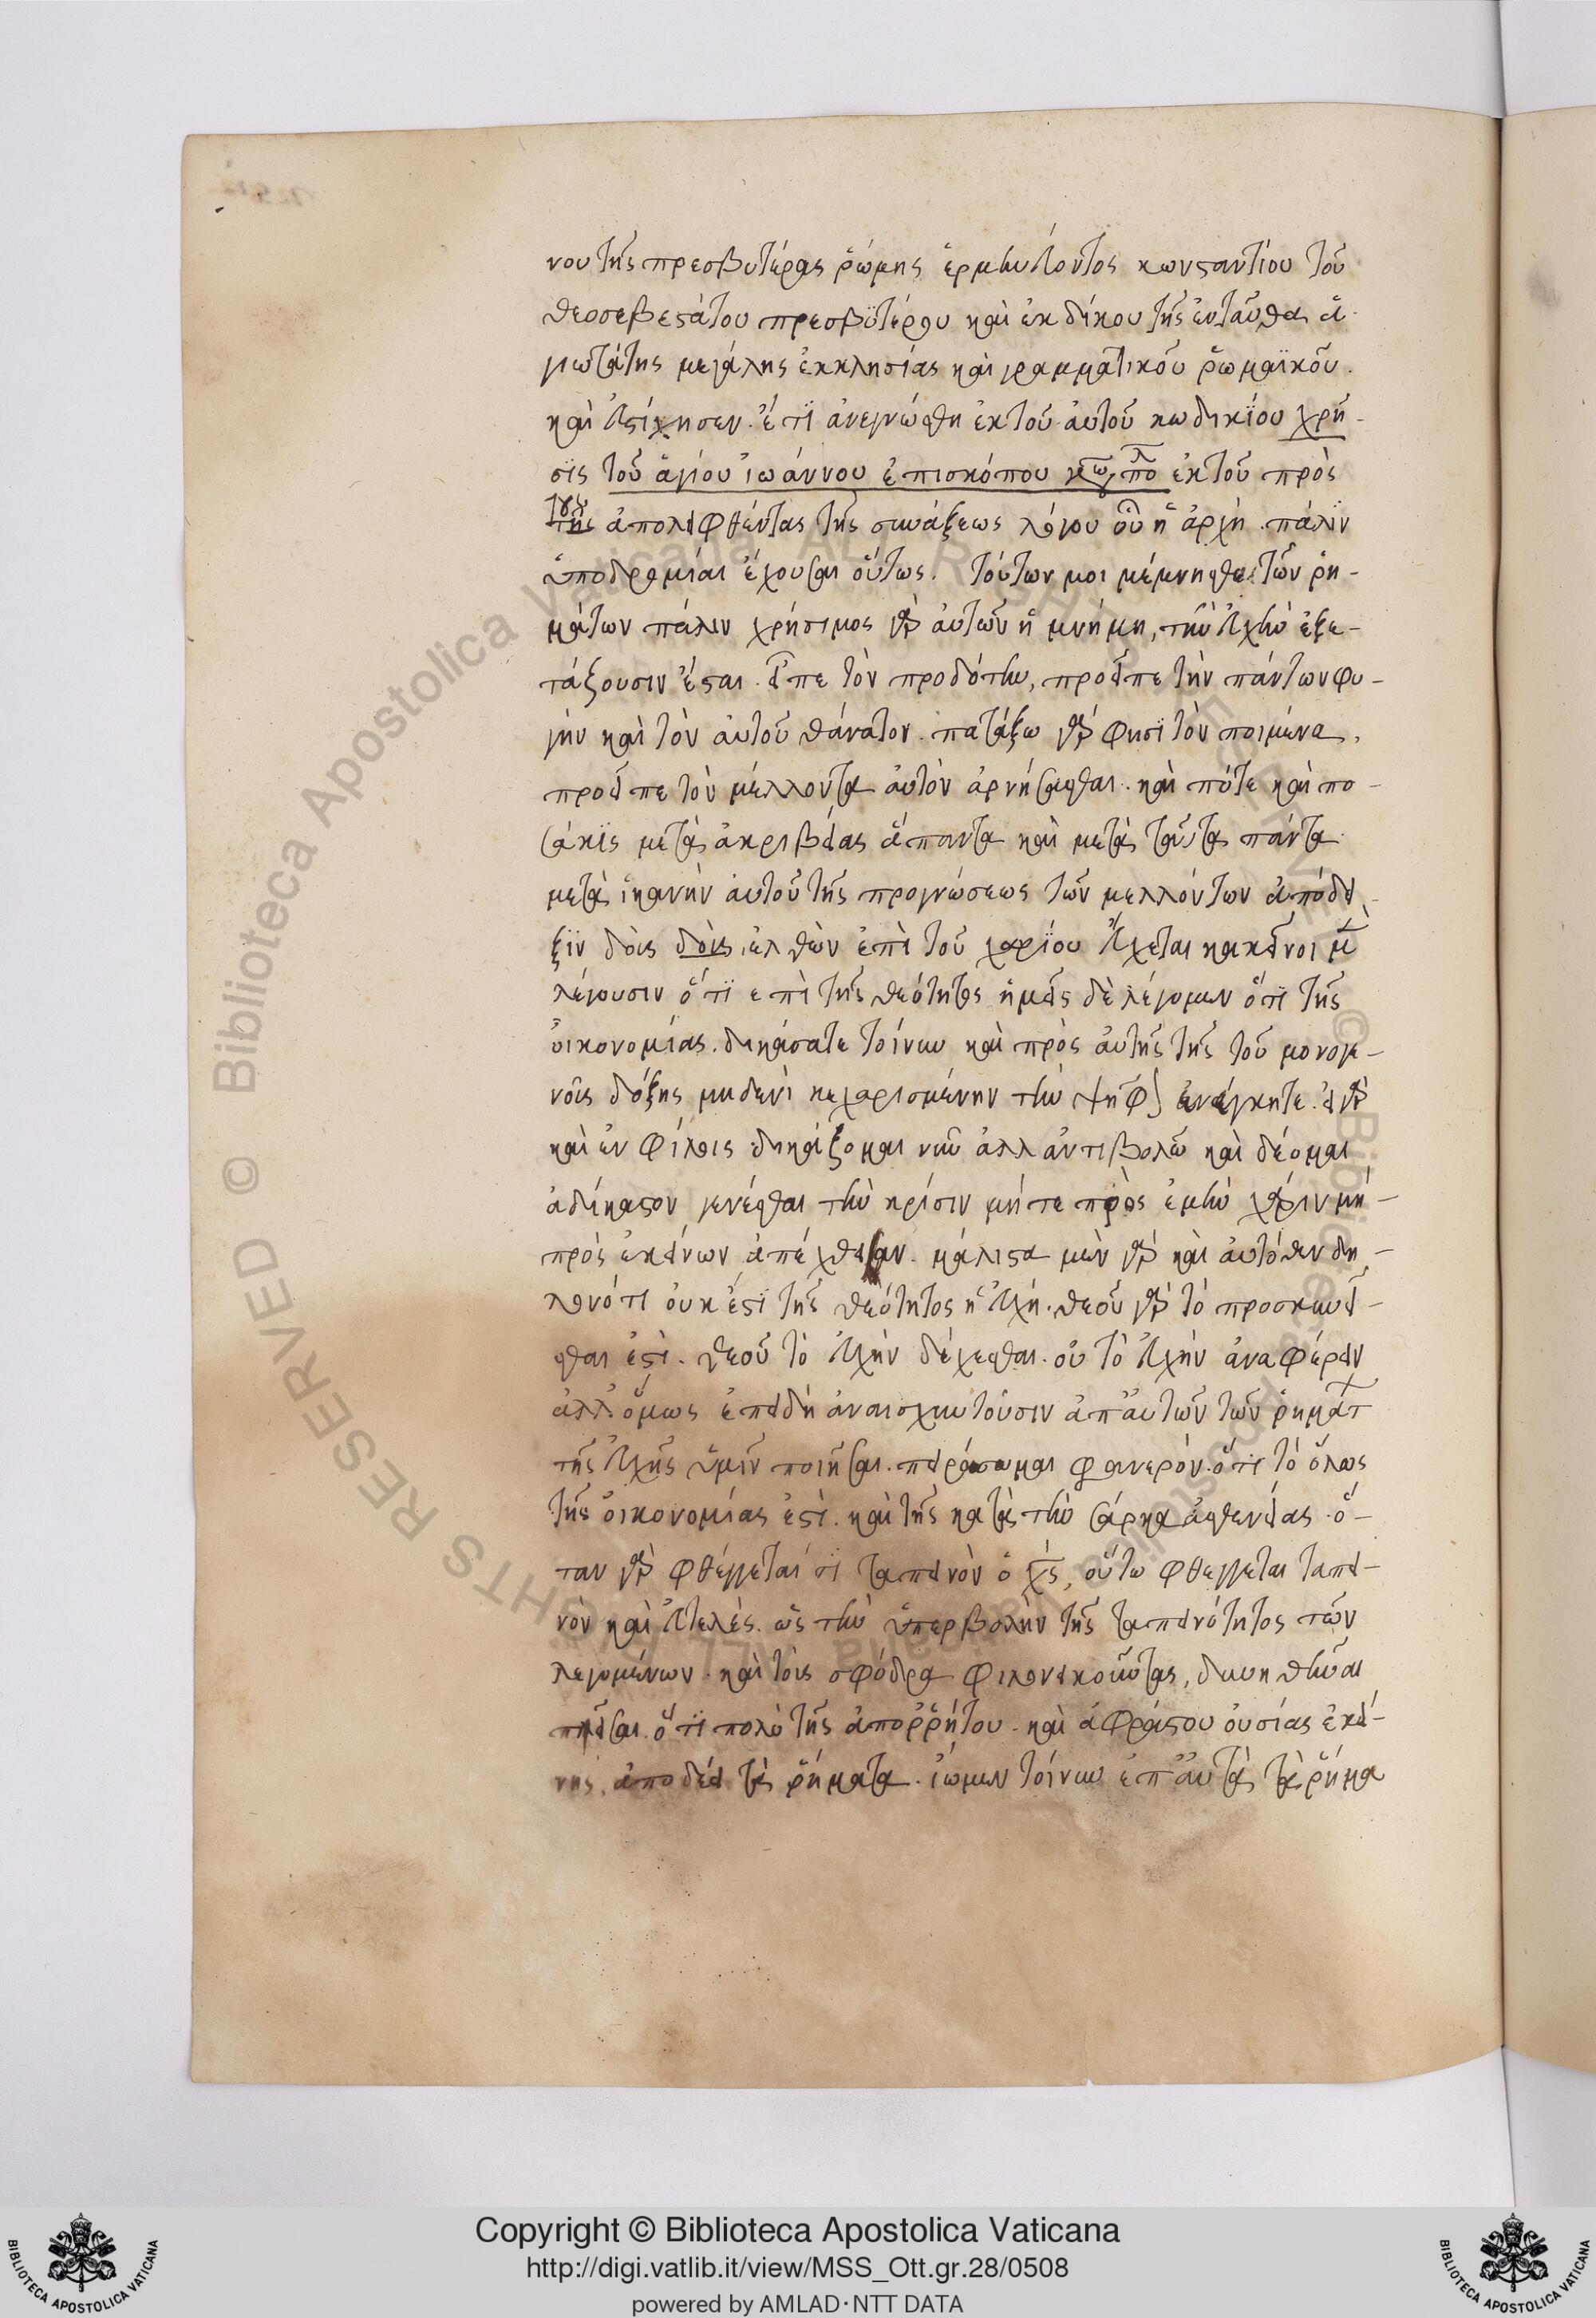 νου τῆς πρεσβυτέρας ῥώμης ἑρμηνεύοντος κωνσταντίου τοῦ
θεοσεβεστάτου πρεσβϋτέρου καὶ ἐκδίκου τῆς ἐνταῦθα ἁ
γιωτάτης μεγάλης ἐκκλησίας καὶ γραμματικοῦ ῥωμαϊκοῦ.
καὶ ἐστίχησεν. ἔτϊ ἀνεγνώσθη ἐκ τοῦ αὐτοῦ κωδικίου χρῆ-
σϊς τοῦ ἁγίου ἰωάννου ἐπισκόπου κωνπολ ἐκ τοῦ πρὸς
τοὺς
τῆς ἀπολειφθέντας τῆς συνάξεως λόγου οὗ ἡ ἀρχὴ. πάλϊν
ὑποδρομίαι ἔχουσαι οὕτως. τούτων μοι μέμνησθε τῶν ῥη-
μάτων πάλιν χρήσιμος γὰρ αὐτῶν ἡ μνήμη, τὴν εὐχὴν ἐξε-
τάζουσιν ἔσται. εἶπε τὸν προδότην, προεῖπε τὴν πάντων φυ-
γὴν καὶ τὸν αὐτοῦ θάνατον. πατάξω γάρ φησϊ τὸν ποιμένα,
προεῖπε τὸν μέλλοντα αὐτὸν ἀρνήσασθαι. καὶ πότε καὶ πο-
σάκϊς μετὰ ἀκριβείας ἅπαντα καὶ μετὰ ταῦτα πάντα
μετὰ ἱκανὴν αὐτοῦ τῆς προγνώσεως τῶν μελλόντων ἀπόδει
ξϊν δοὺς δοὺς, ἐλθὼν ἐπὶ τοῦ χωρίου εὔχεται κακεῖνοι μὲν
λέγουσιν ὅτϊ επὶ τῆς θεότητος ἡμεῖς δὲ λέγομεν ὅτϊ τῆς
οἰκονομίας. δικάσατε τοίνυν καὶ πρὸς αὐτῆς τῆς τοῦ μονογε-
νοῦς δόξης μηδενὶ κεχαρισμένην τὴν ψῆφον ἐνέγκητε. εἰ γὰρ
καὶ ἐν φίλοις δικάζομαι νῦν ἀλλ ἀντιβολῶ καὶ δέομαι
ἀδέκαστον γενέσθαι τὴν κρίσιν μήτε πρὸς ἐμὴν χάριν μή-
πρὸς ἐκείνων ἀπέχθειαν. μάλιστα μὲν γὰρ καὶ αυτόθεν δη
λονότι ουκ ἔστϊ τῆς θεότητος ἡ εὐχή. θεοῦ γὰρ τὸ προσκυνεῖ-
σθαι ἐστὶ. θεοῦ τὸ εὐχὴν δέχεσθαι. οὐ τὸ εὐχὴν ἀναφέρειν
ἀλλ ὅμως ἐπειδὴ ἀναισχυντοῦσιν ἀπ αὐτῶν τῶν ῥημάτ
τῆς εὐχῆς ὑμῖν ποιῆσαι. πειράσωμαι φανερὸν. ὅτϊ τὸ ὅλως
τῆς οἰκονομίας ἐστὶ. καὶ τῆς κατὰ τὴν σάρκα ἀσθενείας. ὅ-
ταν γὰρ φθέγγεταί τϊ ταπεινὸν ὁ χς, οὕτω φθεγγεται ταπει-
νὸν καὶ εὐτελὲς. ὡς τὴν ὑπερβολὴν τῆς ταπεινότητος τῶν
λεγομένων. καὶ τοὺς σφόδρα φιλονεικοῦντας, δυνηθῆναι
πεῖσαι. ὅτϊ πολὺ τῆς ἀποῤῥήτου. καὶ ἀφράστου ουσίας ἐκεί-
νης, ἀποδέει τὰ ῥήματα. ἴωμεν τοίνυν ἐπ αὐτὰ τὰ ῥήμα
Copyright © Biblioteca Apostolica Vaticana
http://digi.vatlib.it/view/MSS_Ott.gr.28/0508
powered by AMLAD·NTT DATA